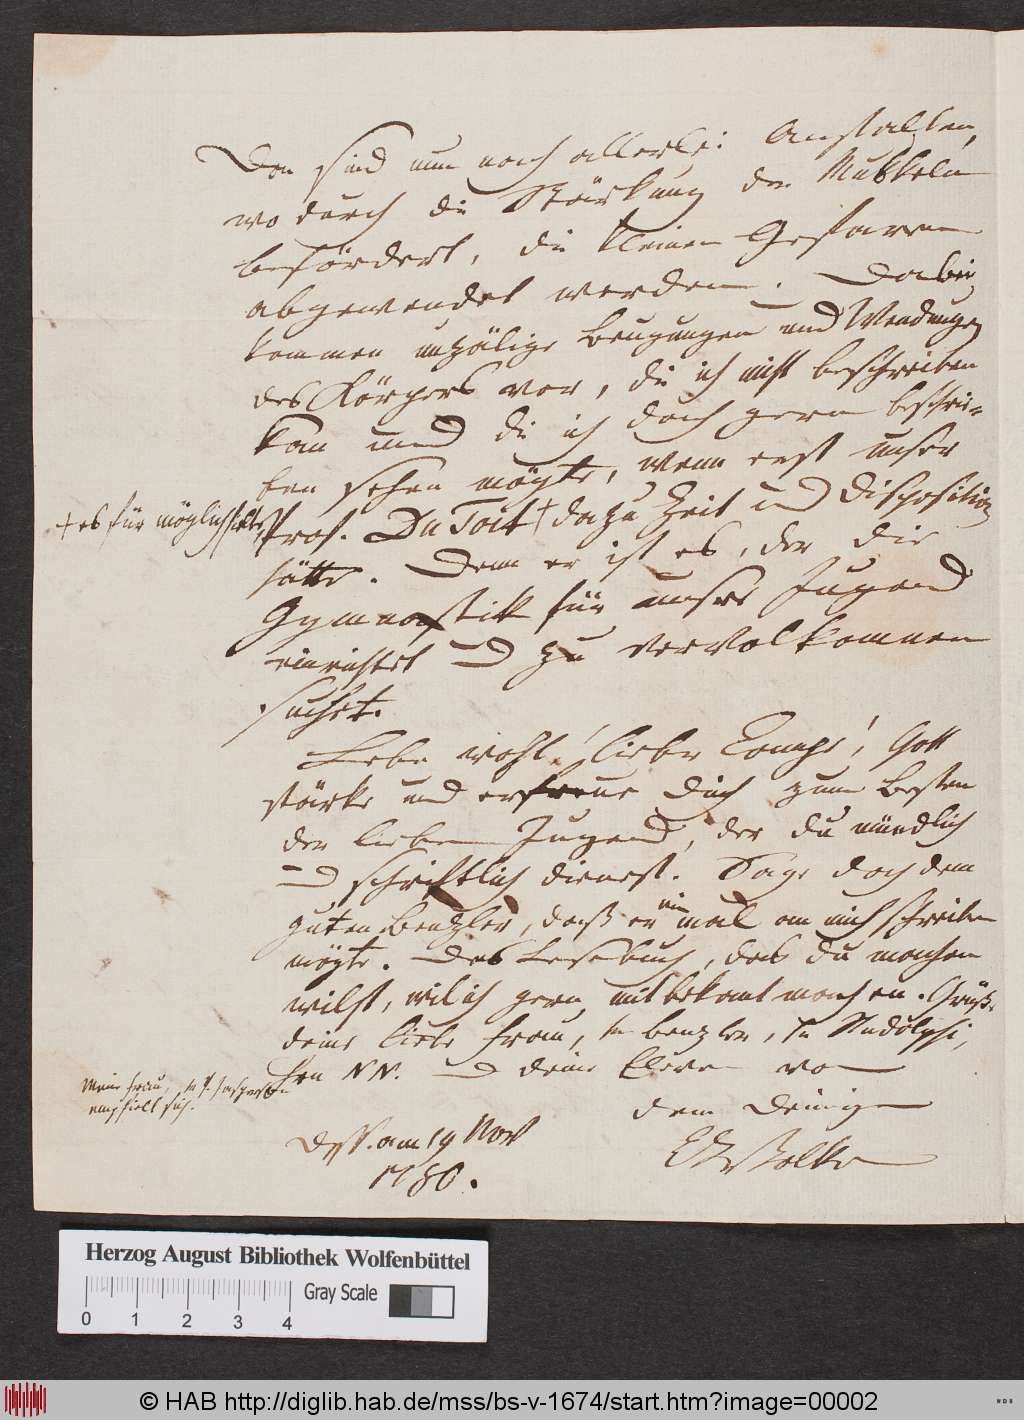 Da sind nun noch allerlei Anstalten,
wodurch die Stärkung der Muskeln
befördert, die kleinen Gefahren
abgewendet werden. Dabei
kommen unzälige Beugungen und Wendungen
des Körpers vor, die ich nicht beschreiben
kan und die ich doch gern beschrie=
ben sehen mögte, wenn erst unser
Prof. Du Toit + dazu Zeit und Disposition
+ es für möglich hielte,
hätte. Denn er ist es, der die
Gymnastik für unsre Jugend
einrichtet und zu vervolkomnen
suchet.
Lebe wohl! lieber Campe! Gott
stärke und erfreue dich zum Besten
der lieben Jugend, der du mündlich
und schriftlich dienest. Sage doch dem
guten Benzler, daß er einmal an mich schreiben
mögte. Das Lesebuch, das du machen
wilst, wil ich gern mit bekant machen. Grüße
deine liebe Frau, Benzler, Rudolphi,
Hrn NN. und deine Eleven von
Meine Frau,
empfielt sich.
dem Deinigen
Dess. am 19 Nov
1780.
CHWolke
Herzog August Bibliothek Wolfenbüttel
Gray Scale
0 1 2 3 4
© HAB http://diglib.hab.de/mss/bs-v-1674/start.htm?image=00002